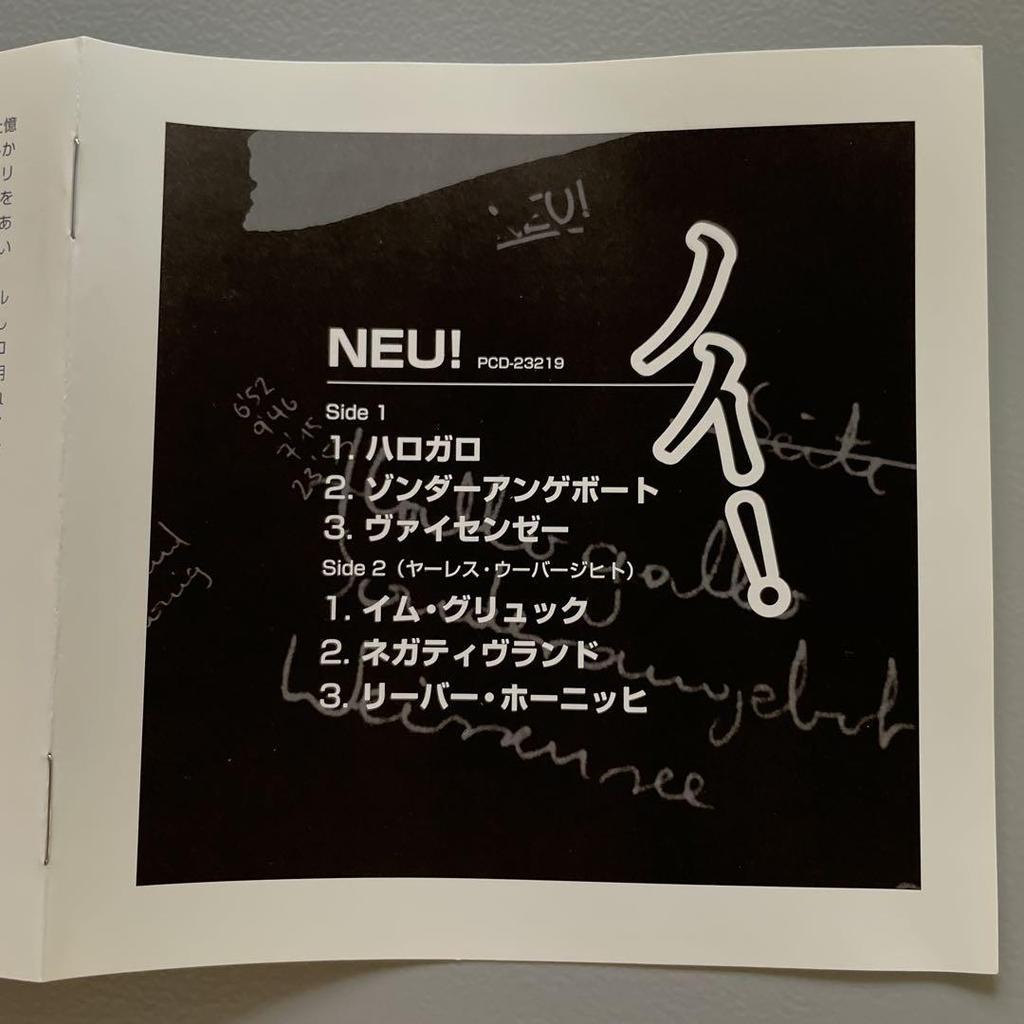 憶
か
リ
を
あ
い
ル
し
NEU!
ノイ!
NEU! PCD-23219
6'52
9'46
7'15
23
Seite
Side 1
1. ハロガロ
2. ゾンダーアンゲボート
3. ヴァイセンゼー
Side 2（ヤーレス・ウーバージヒト）
1. イム・グリュック
2. ネガティヴランド
3. リーバー・ホーニッヒ
Hallogallo
Sonderangebot
Weissensee